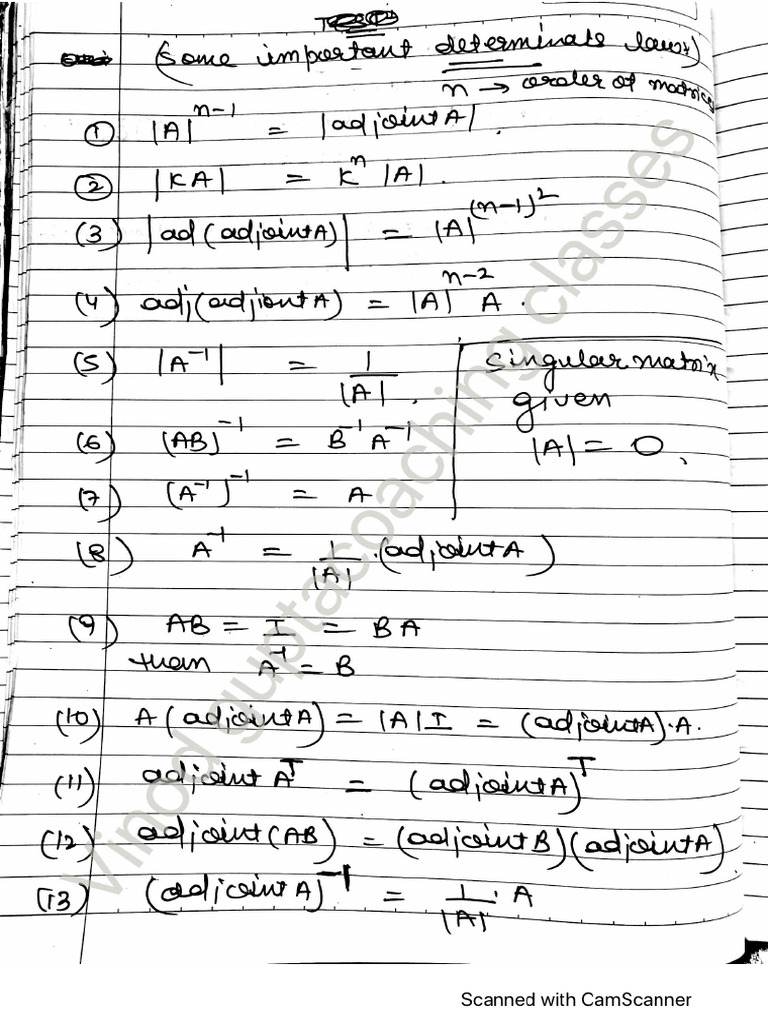 (Some important determinats laws)
n → order of matrices
① |A|^{n-1} = |adjoint A|.
② |KA| = K^n |A|.
(3) |ad(adjoint A)| = |A|^{(n-1)^2}
(4) adj(adjiont A) = |A|^{n-2} A.
(5) |A^{-1}| = 1/|A|.
(6) (AB)^{-1} = B^{-1} A^{-1}
(7) (A^{-1})^{-1} = A
Singular matrix
given
|A| = 0.
(8) A^{-1} = 1/|A| · (adjoint A)
(9) AB = I = BA
than A^{-1} = B
(10) A (adjoint A) = |A| I = (adjoint A)·A.
(11) adjoint A^T = (adjoint A)^T
(12) adjoint (AB) = (adjoint B) (adjoint A)
(13) (adjoint A)^{-1} = 1/|A| · A
Vinod guptacoaching classes
Scanned with CamScanner